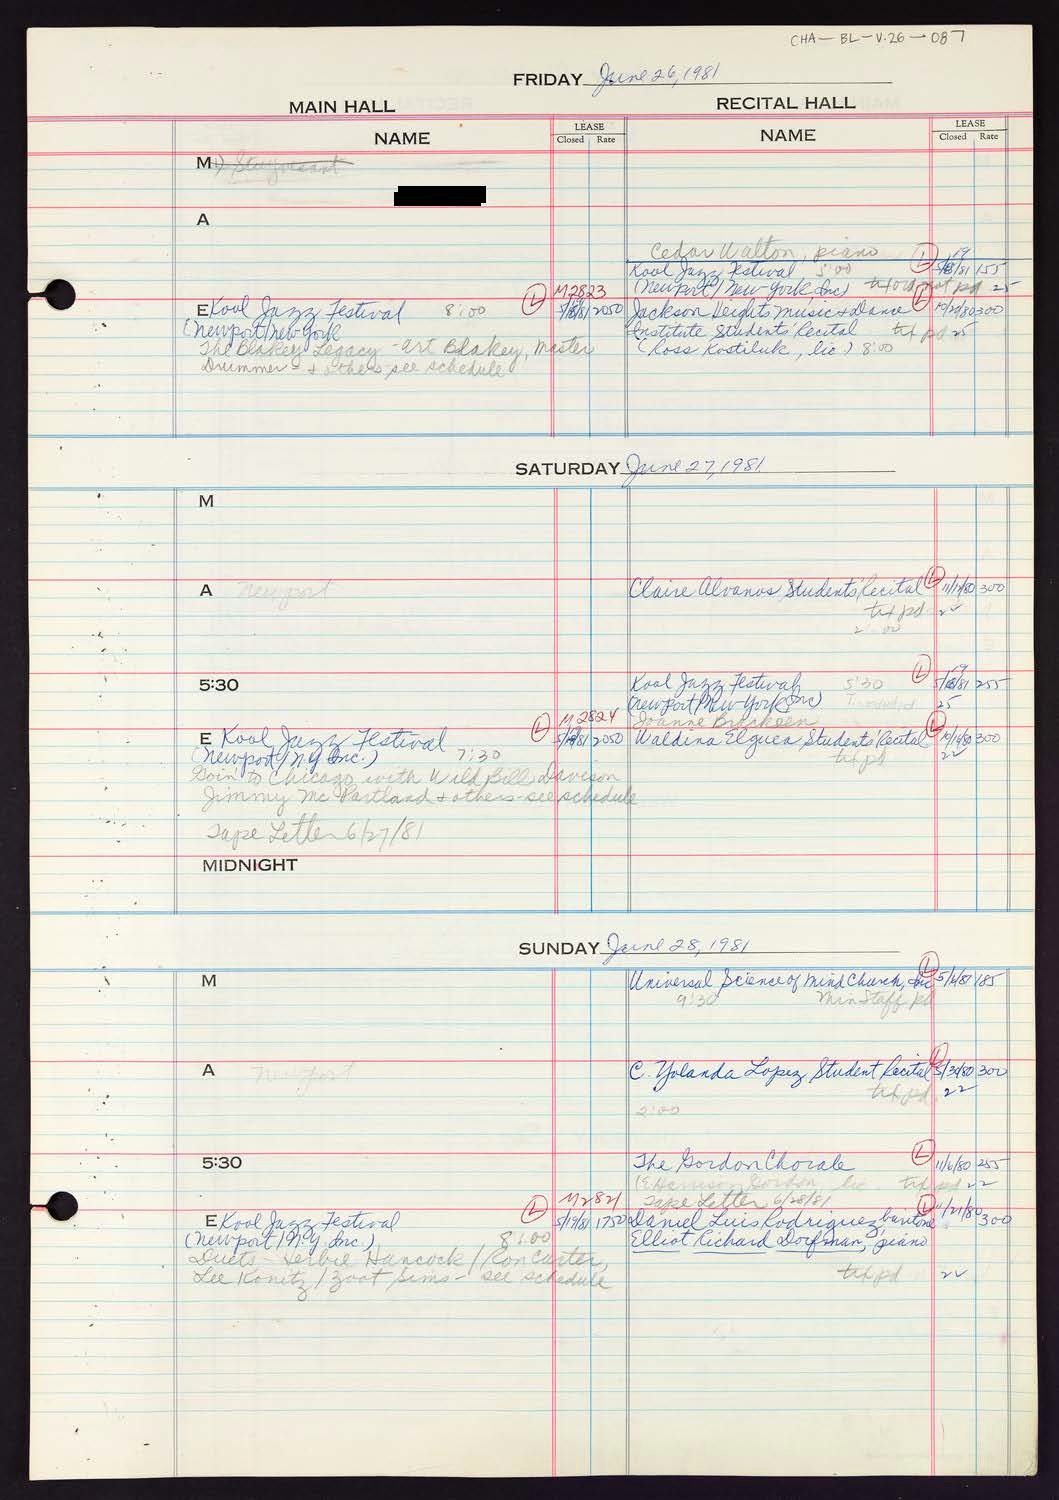 CHA-BL-V.26-087
FRIDAY June 26, 1981
MAIN HALL
RECITAL HALL
NAME
LEASE
Closed Rate
NAME
LEASE
Closed Rate
M 1) Stuyvesant
A
Cedar Walton, piano
Kool Jazz Festival 5:00 L 5/19/81 155
(Newport/New York, Inc) pd 25
E Kool Jazz Festival 8:00 L M2823 2050
(Newport/New York
The Blakey Legacy - Art Blakey, Master
Drummer - & others - see schedule
Jackson Heights Music & Dance L 10/29/80 300
Institute Students' Recital txt pd 25
(Ross Kostiluk, lic.) 8:00
SATURDAY June 27, 1981
M
A Newport
Claire Alvanos Students' Recital L 11/17/80 300
txt pd 22
2:00
5:30
Kool Jazz Festival 5:30 L 5/19/81 255
(Newport/New York, Inc) 25
Joanne Brackeen
E Kool Jazz Festival L M2824 2050
(Newport/N.Y. Inc.) 7:30
Goin' to Chicago with Wild Bill Davison
Jimmy McPartland & others - see schedule
Tape Letter 6/27/81
Waldina Elguea Students' Recital L 10/16/80 300
txt pd 22
MIDNIGHT
SUNDAY June 28, 1981
M
Universal Science of Mind Church, Inc L 5/4/81 185
9:30 Min Staff pd
A Newport
C. Yolanda Lopez Student Recital L 5/30/80 300
txt pd 22
2:00
5:30
The Gordon Chorale L 11/6/80 255
(E. Harrison Gordon, lic. txt pd 22
Tape Letter 6/28/81
E Kool Jazz Festival L M2821 5/19/81 1750
(Newport/N.Y. Inc.) 8:00
Duets - Herbie Hancock / Ron Carter,
Lee Konitz / Zoot Sims - see schedule
Daniel Luis Rodriguez, baritone L 11/21/80 300
Elliot Richard Dorfman, piano
txt pd 22